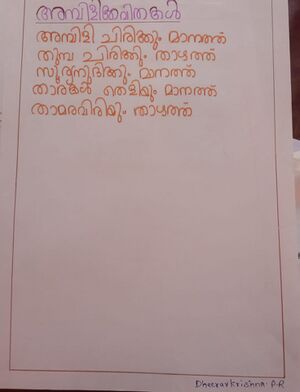 അമ്പിളിക്കവിതകൾ
അമ്പിളി ചിരിക്കും മാനത്ത്
തുമ്പ ചിരിക്കും താഴത്ത്
സൂര്യനുദിക്കും മാനത്ത്
താരങ്ങൾ തെളിയും മാനത്ത്
താമരവിരിയും താഴത്ത്
Dheeravkrishna. P.R